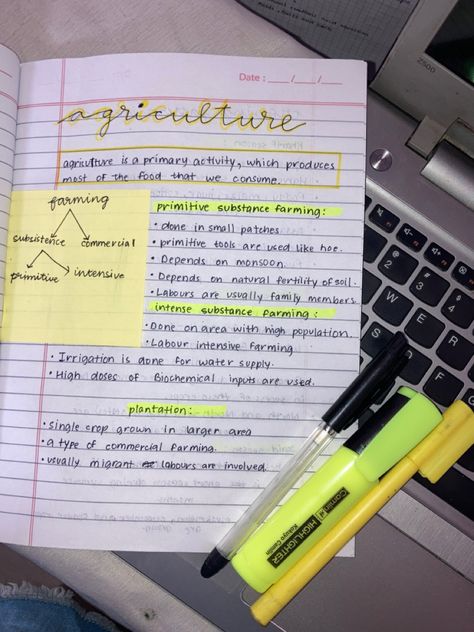 Date : ___/___/___
agriculture
agriculture is a primary activity, which produces
most of the food that we consume.
farming
subsistence commercial
primitive intensive
primitive substance farming:
• done in small patches
• primitive tools are used like hoe.
• Depends on monsoon.
• Depends on natural fertility of soil.
• Labours are usually family members.
intense substance farming:
• Done on area with high population.
• Labour intensive farming
• Irrigation is done for water supply.
• High doses of Biochemical inputs are used.
plantation:
• single crop grown in larger area
• a type of commercial farming.
• usually migrant labours are involved.
HIGHLIGHTER
Kokuyo Camlin
2
3
4
W
E
R
S